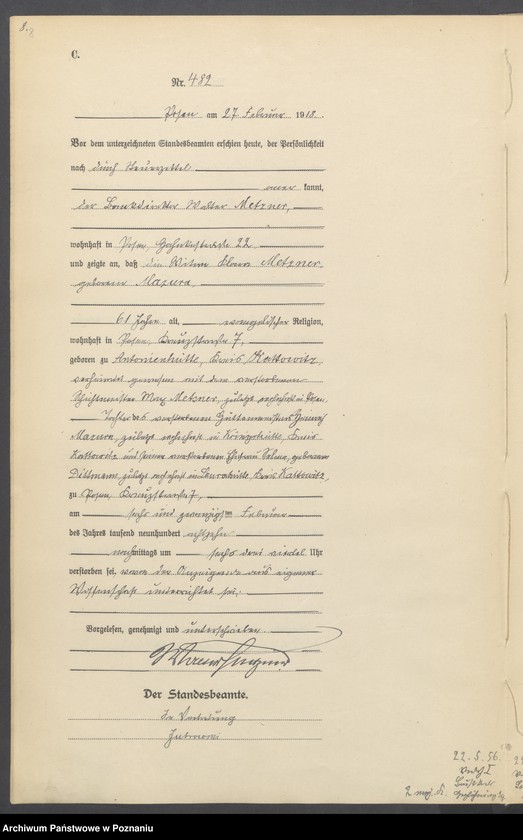 C.
Nr. 482
Posen am 27. Februar 1918.
Vor dem unterzeichneten Standesbeamten erschien heute, der Persönlichkeit
nach durch Steuerzettel
aner kannt,
der Bankdirektor Walter Metzner,
wohnhaft in Posen, 22
und zeigte an, daß die Witwe Klara Metzner,
geborene Mazura,
61 Jahre alt, evangelischer Religion,
wohnhaft in Posen, 7,
geboren zu Antonienhütte, Kreis Kattowitz,
verheiratet gewesen mit dem verstorbenen
Max Metzner, zuletzt wohnhaft in Posen.
Tochter des verstorbenen Hüttenmeisters
Mazura, zuletzt wohnhaft in Königshütte, Kreis
Kattowitz und seiner verstorbenen Ehefrau Selma, geborenen
Dittmann zuletzt wohnhaft in Laurahütte Kreis Kattowitz,
zu Posen, 7,
am sechs und zwanzigsten Februar
des Jahres tausend neunhundert achtzehn
nachmittags um sechs drei viertel Uhr
verstorben sei, wovon der Anzeigende aus eigener
Wissenschaft unterrichtet sei.
Vorgelesen, genehmigt und unterschrieben
Walter Metzner
Der Standesbeamte.
In Vertretung
22.5.56.
Archiwum Państwowe w Poznaniu